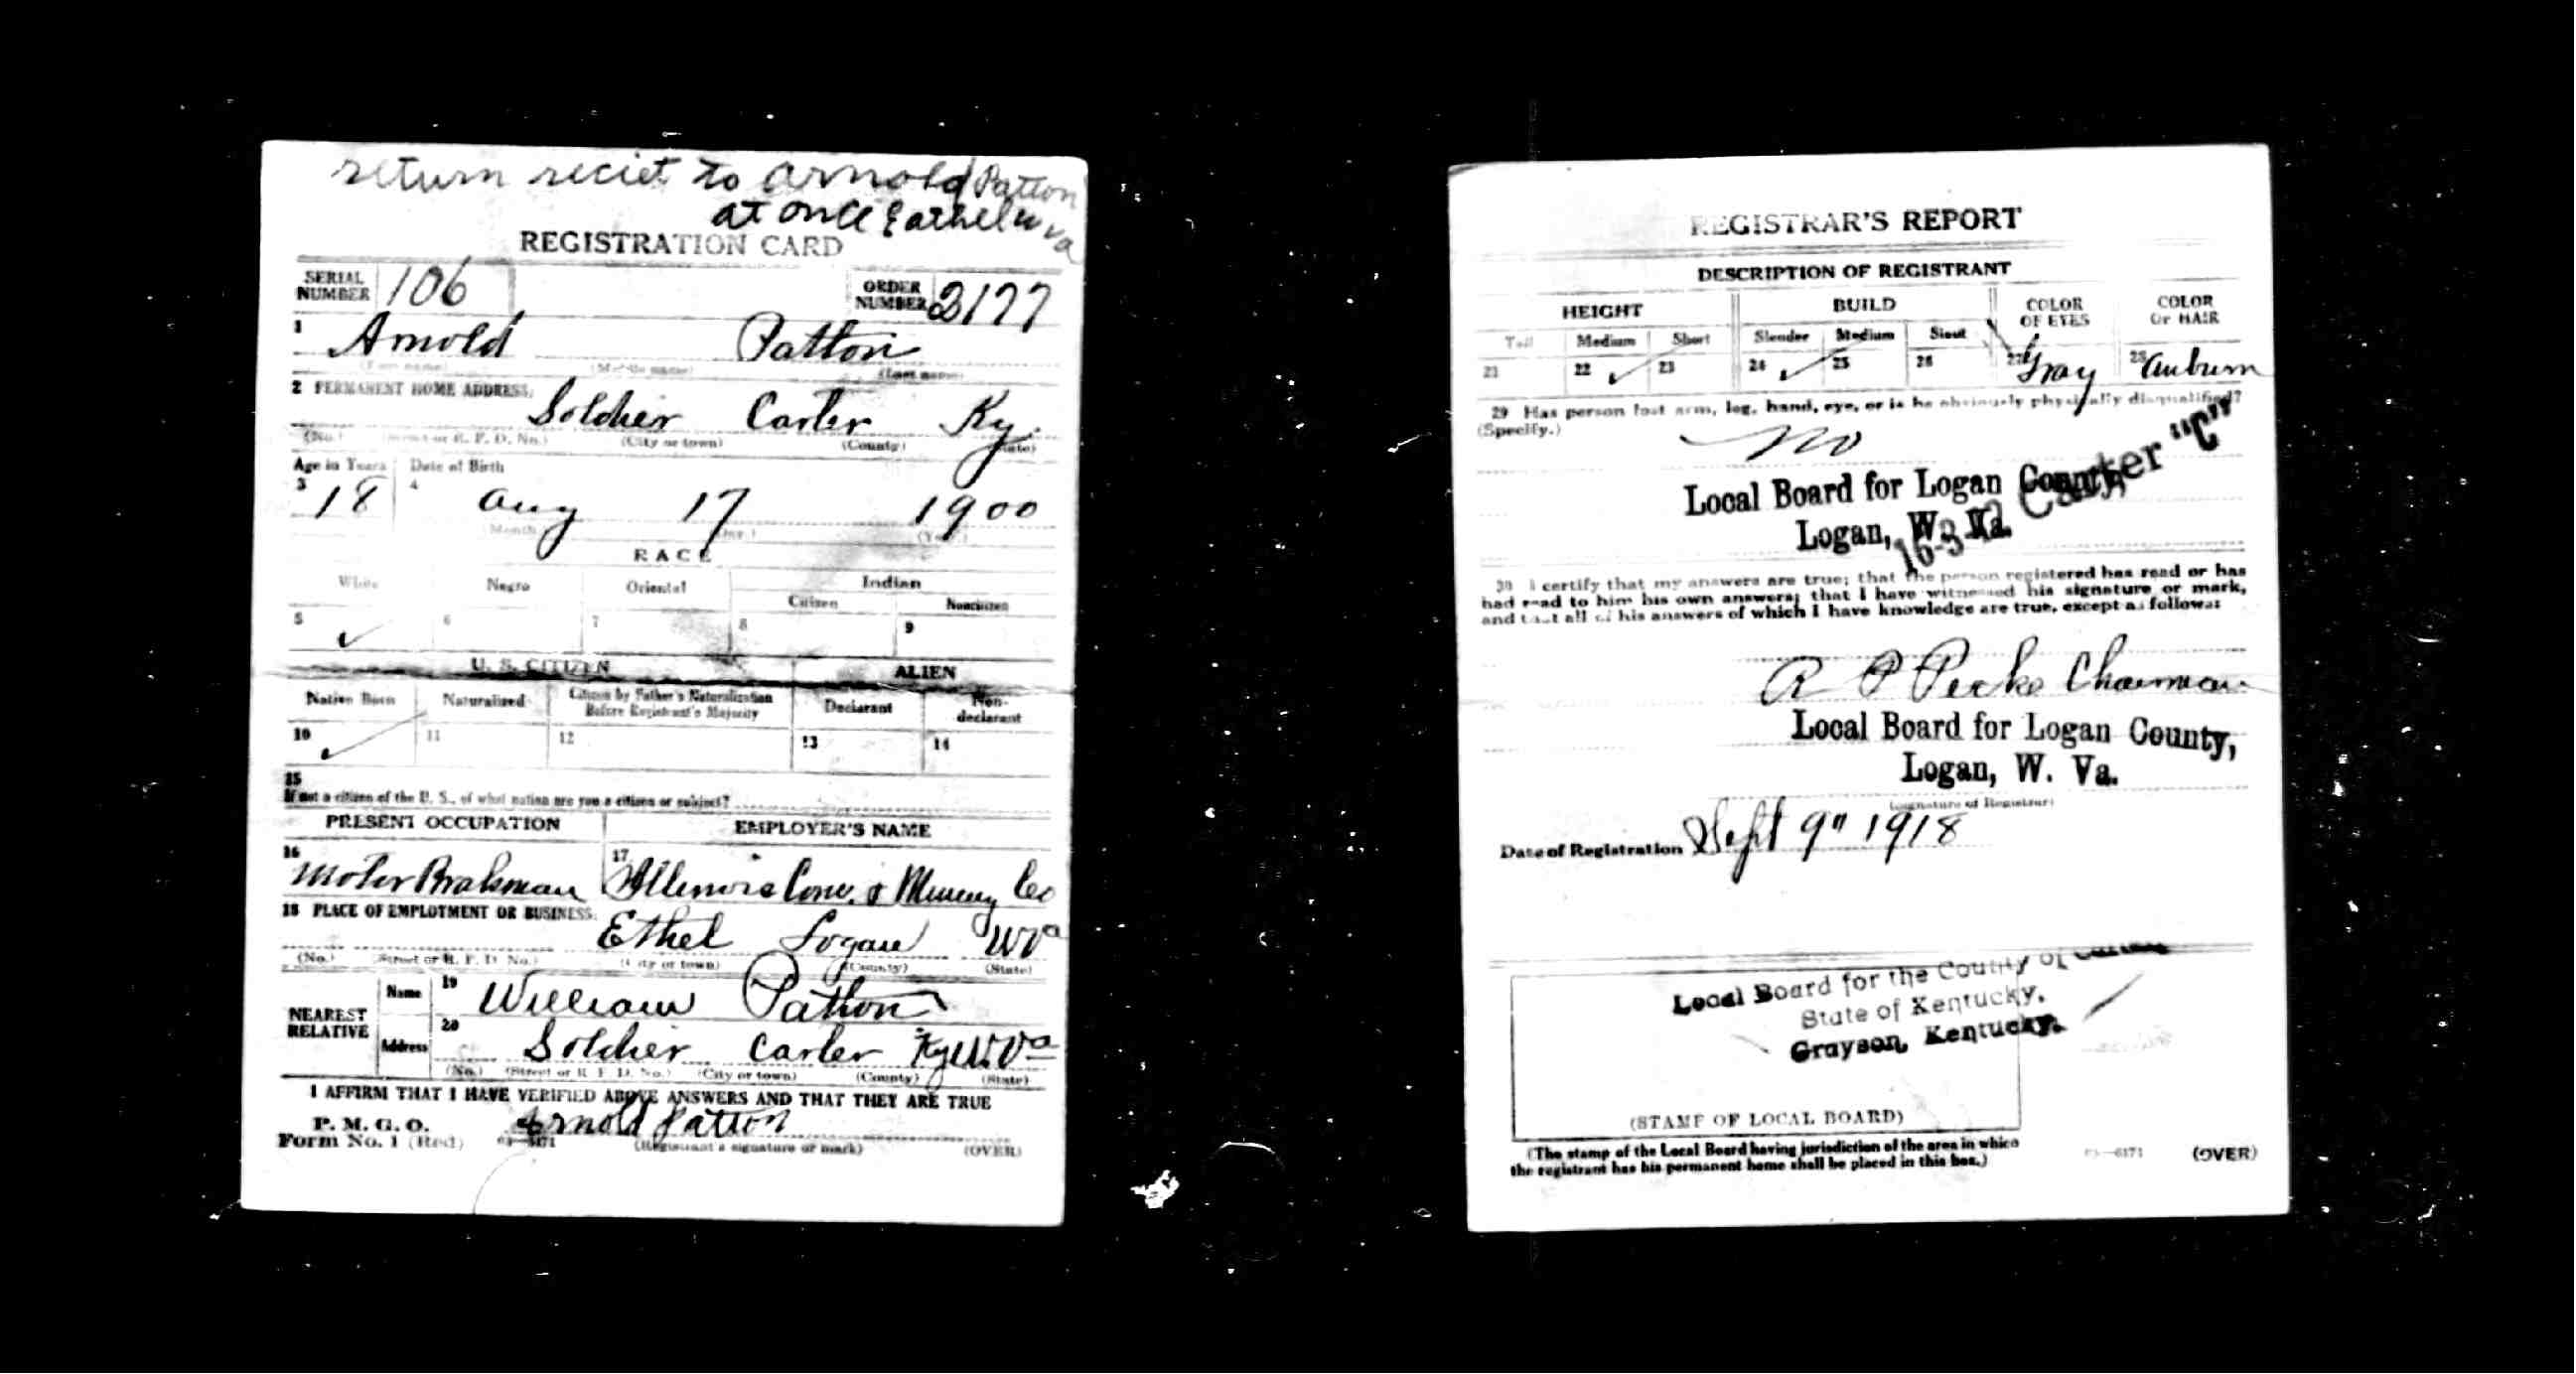 return reciet to arnold Patton
at once Eathel w va
REGISTRATION CARD
SERIAL NUMBER 106 ORDER NUMBER 3177
1 Arnold Patton
(First name) (Middle name) (Last name)
2 PERMANENT HOME ADDRESS:
Soldier Carter Ky.
(No.) (Street or R. F. D. No.) (City or town) (County) (State)
Age in Years Date of Birth
3 18 4 Aug 17 1900
(Month) (Day.) (Year.)
RACE
White Negro Oriental Indian
Citizen Noncitizen
5 ✓ 6 7 8 9
U. S. CITIZEN ALIEN
Native Born Naturalized Citizen by Father's Naturalization Before Registrant's Majority Declarant Non-declarant
10 ✓ 11 12 13 14
15
If not a citizen of the U. S., of what nation are you a citizen or subject?
PRESENT OCCUPATION EMPLOYER'S NAME
16 Motor Brakman 17 Illinois Mining Co
18 PLACE OF EMPLOYMENT OR BUSINESS:
Ethel Logan WVa
(No.) (Street or R. F. D. No.) (City or town) (County) (State)
NEAREST RELATIVE Name 19 William Patton
Address 20 Soldier Carter Ky W.Va
(No.) (Street or R. F. D. No.) (City or town) (County) (State)
I AFFIRM THAT I HAVE VERIFIED ABOVE ANSWERS AND THAT THEY ARE TRUE
P. M. G. O.
Form No. 1 (Red) 03—6171 Arnold Patton
(Registrant's signature or mark) (OVER)
REGISTRAR'S REPORT
DESCRIPTION OF REGISTRANT
HEIGHT BUILD COLOR OF EYES COLOR OF HAIR
Tall Medium Short Slender Medium Stout
21 22 ✓ 23 24 ✓ 25 26 27 Gray 28 Auburn
29 Has person lost arm, leg, hand, eye, or is he obviously physically disqualified?
(Specify.)
No
Local Board for Logan County,
Logan, W. Va.
16-3-12 Carter "C"
30 I certify that my answers are true; that the person registered has read or has
had read to him his own answers; that I have witnessed his signature or mark,
and that all of his answers of which I have knowledge are true, except as follows:
R P Pecks Chairman
Local Board for Logan County,
Logan, W. Va.
(Signature of Registrar)
Date of Registration Sept 9" 1918
Local Board for the County of
State of Kentucky,
Grayson, Kentucky.
(STAMP OF LOCAL BOARD)
(The stamp of the Local Board having jurisdiction of the area in which
the registrant has his permanent home shall be placed in this box.)
03—6171 (OVER)